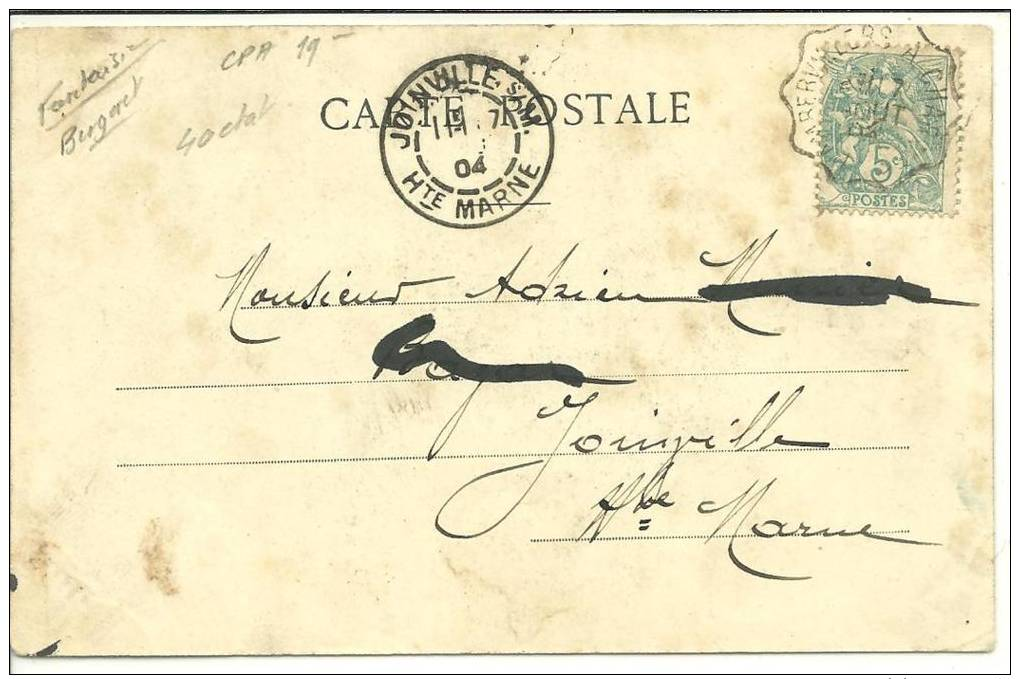 Fantaisie
Bergeret
CPA 19
CARTE POSTALE
JOINVILLE-S-M.
04
HTE MARNE
5c
POSTES
Monsieur Adrien
Joinville
Hte Marne